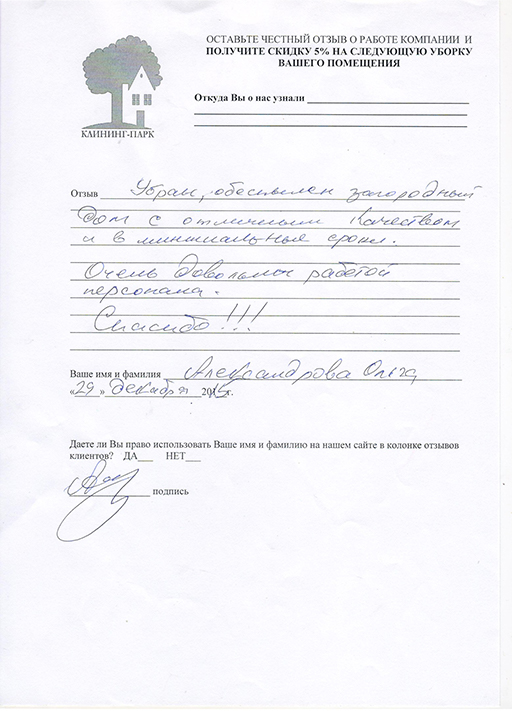 ОСТАВЬТЕ ЧЕСТНЫЙ ОТЗЫВ О РАБОТЕ КОМПАНИИ И
ПОЛУЧИТЕ СКИДКУ 5% НА СЛЕДУЮЩУЮ УБОРКУ
ВАШЕГО ПОМЕЩЕНИЯ
КЛИНИНГ-ПАРК
Откуда Вы о нас узнали
Отзыв Убран, обеспылен загородный
дом с отличным качеством
и в минимальные сроки.
Очень довольны работой
персонала.
Спасибо!!!
Ваше имя и фамилия Александрова Ольга
«29» декабря 2015г.
Даете ли Вы право использовать Ваше имя и фамилию на нашем сайте в колонке отзывов
клиентов? ДА___ НЕТ___
подпись